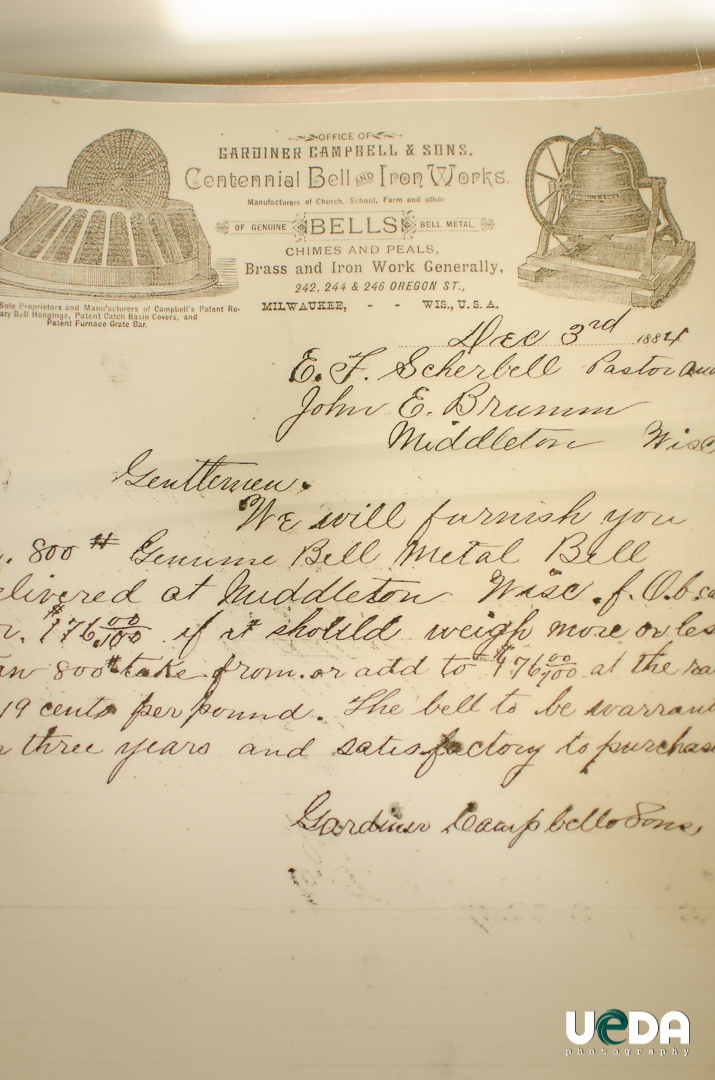 OFFICE OF
GARDINER CAMPBELL & SONS,
Centennial Bell AND Iron Works.
Manufacturers of Church, School, Farm and other
OF GENUINE BELLS BELL METAL,
CHIMES AND PEALS,
Brass and Iron Work Generally,
242, 244 & 246 OREGON ST.,
MILWAUKEE, - - WIS., U.S.A.
Sole Proprietors and Manufacturers of Campbell's Patent Ro-
ary Bell Hangings, Patent Catch Basin Covers, and
Patent Furnace Grate Bar.
Dec 3rd 1884
E. F. Scherbell Pastor and
John E. Brumm
Middleton Wisc
Gentlemen.
We will furnish you
800# Genuine Bell Metal Bell
elivered at Middleton Wisc. f.O.b ca
r. $176 00/100 if it should weigh more or les
an 800# take from or add to $176 00/100 at the ra
19 cents per pound. The bell to be warran
three years and satisfactory to purchas
Gardiner Campbell & Sons,
UeDA
photography